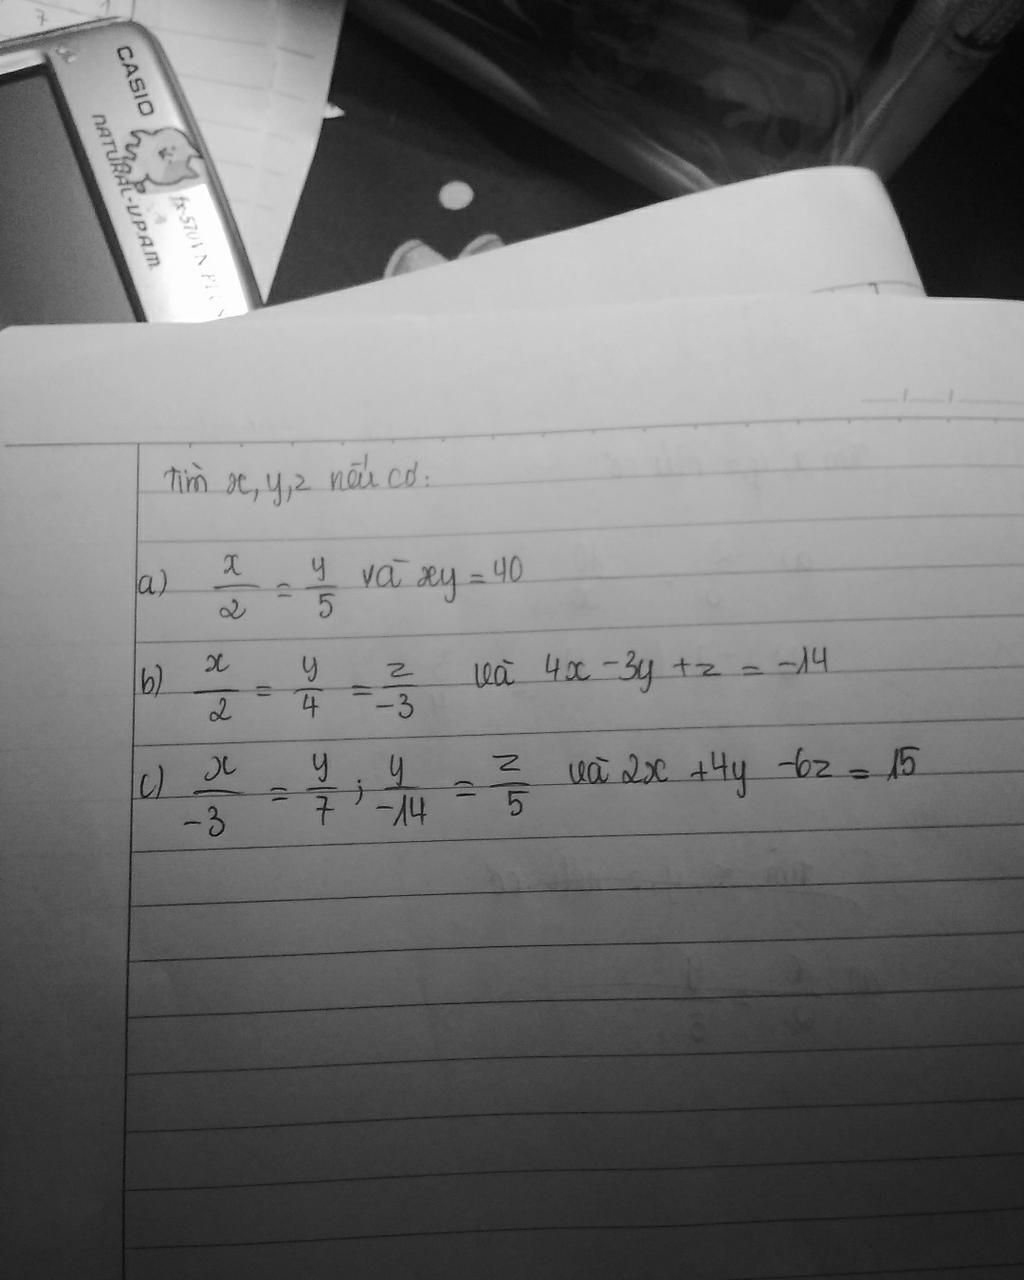 CASIO
NATURAL-V.P.A.M.
Tìm x, y, z nếu có:
a) x/2 = y/5 và xy = 40
b) x/2 = y/4 = z/-3 và 4x - 3y + z = -14
c) x/-3 = y/7 ; y/-14 = z/5 và 2x + 4y - 6z = 15